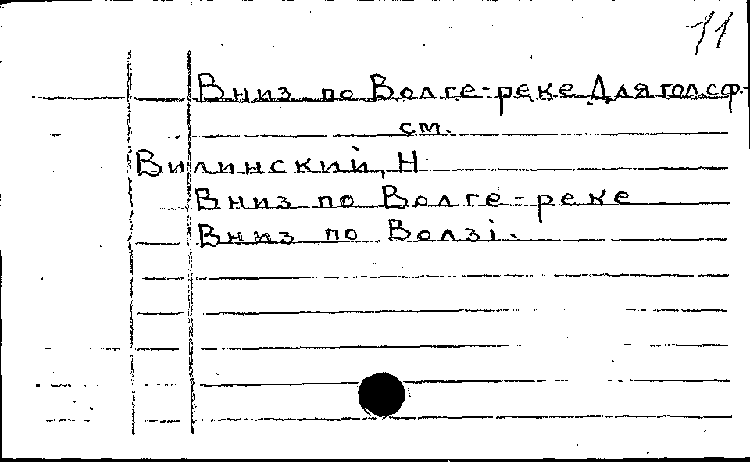 11
Вниз по Волге-реке Для гол с ф-
см.
Вилинский, Н
Вниз по Волге-реке
Вниз по Волзі.